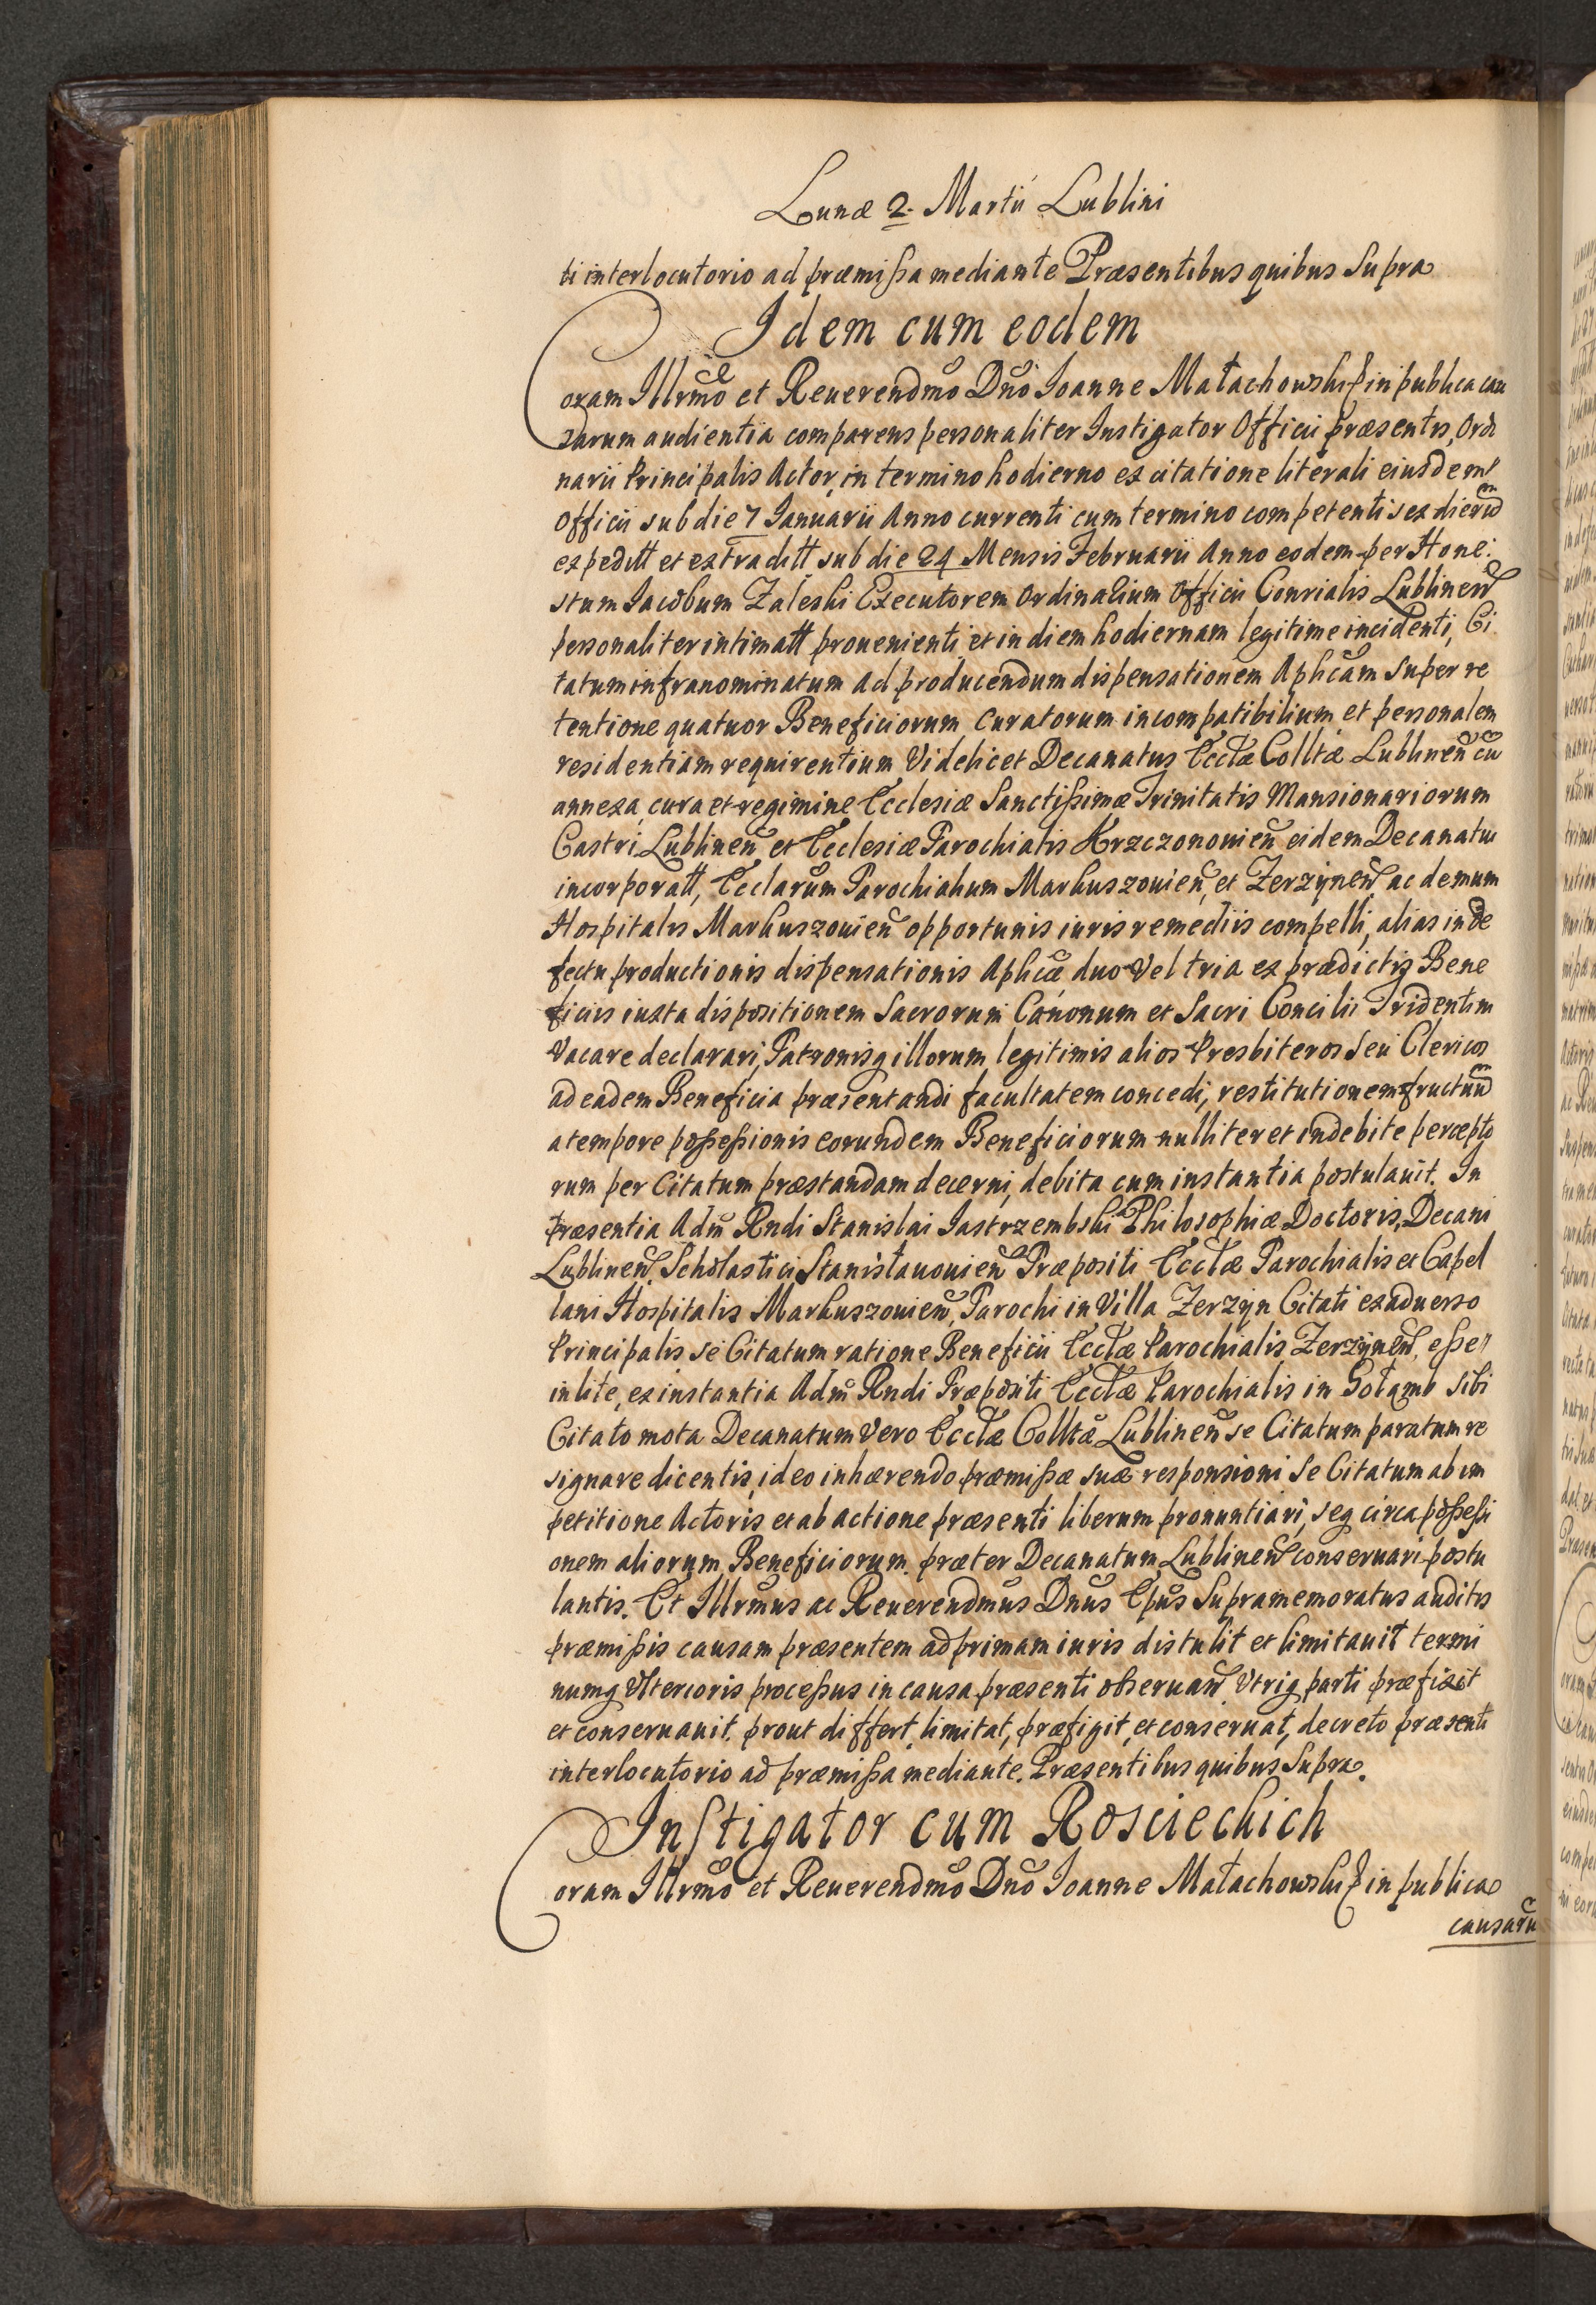 Lunæ 2. Martii Lublini
ti interlocutorio ad præmissa mediante Præsentibus quibus Supra
Idem cum eodem
Coram Illrmo et Reuerendmo Dno Ioanne Małachowski in publica cau
sarum audientia comparens personaliter Instigator Officii præsentis, Ordi
narii Principalis Actor, in termino hodierno ex citatione literali eiusdem
Officii sub die 7 Ianuarii Anno currenti cum termino competenti sex dierum
expeditt et extraditt sub die 24 Mensis Februarii Anno eodem per Hone:
stum Iacobum Zaleski Executorem Ordinarium Officii Consialis Lublinen
personaliter intimatt prouenienti et in diem hodiernam legitime incidenti, Ci
tatum infranominatum ad producendum dispensationem Aplicam super re
tentione quatuor Beneficiorum Curatorum incompatibilium et personalem
residentiam requirentium Videlicet Decanatus Ecctæ Colltæ Lublinen cu
annexa cura et regimine Ecclesiæ Sanctissimæ Trinitatis Mansionariorum
Castri Lublinen et Ecclesiæ Parochialis Krzczonouien eidem Decanatui
incorporatt, Ecclarum Parochialium Markuszouien, et Zerzynen ac demum
Hospitalis Markuszouien opportunis iuris remediis compelli, alias in de
fectu productionis dispensationis Aplicæ, duo Vel tria ex prædictis Bene
ficiis iuxta dispositionem Sacrorum Canonum et Sacri Concilii Tridentini
Vacare declarari, Patronisq illorum legitimis alios Presbiteros Seu Clericos
ad eadem Beneficia præsentandi facultatem concedi, restitutionem fructuum
a tempore possessionis eorundem Beneficiorum nulliter et indebite percepto
rum per Citatum præstandam decerni, debita cum instantia postulauit. In
præsentia Adm Rndi Stanislai Iastrzembski Philosophiæ Doctoris, Decani
Lublinen, Scholastici Stanisłauouien Præpositi Ecctæ Parochialis et Capel
lani Hospitalis Markuszouien, Parochi in Villa Zerzyn Citati ex aduerso
Principalis se Citatum ratione Beneficii Ecctæ Parochialis Zerzynen, esse
in lite, ex instantia Adm Rndi Præpositi Ecctæ Parochialis in Gołamb sibi
Citato mota Decanatum Vero Ecctæ Colltæ Lublinen se Citatum paratum re
signare dicentis, ideo inhærendo præmissæ suæ responsioni se Citatum ab im
petitione Actoris et ab actione præsenti liberum pronuntiari, seq circa possessi
onem aliorum Beneficiorum præter Decanatum Lublinen conseruari postu
lantis. Et Illrmus ac Reuerendmus Dnus Epus Supramemoratus auditis
præmissis causam præsentem ad primam iuris distulit et limitauit termi
numq Vlterioris processus in causa præsenti obseruan Vtriq parti præfixit
et conseruauit. prout differt, limitat, præfigit, et conseruat, decreto præsenti
interlocutorio ad præmissa mediante. Præsentibus quibus Supra.
Instigator cum Rosciechich
Coram Illrmo et Reuerendmo Dno Ioanne Małachowski in publica
causaru